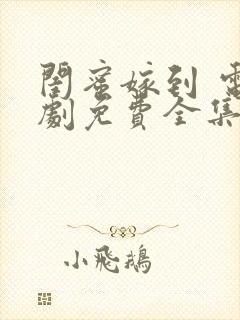 闺蜜嫁到 電
劇免費全集
小飛鵝